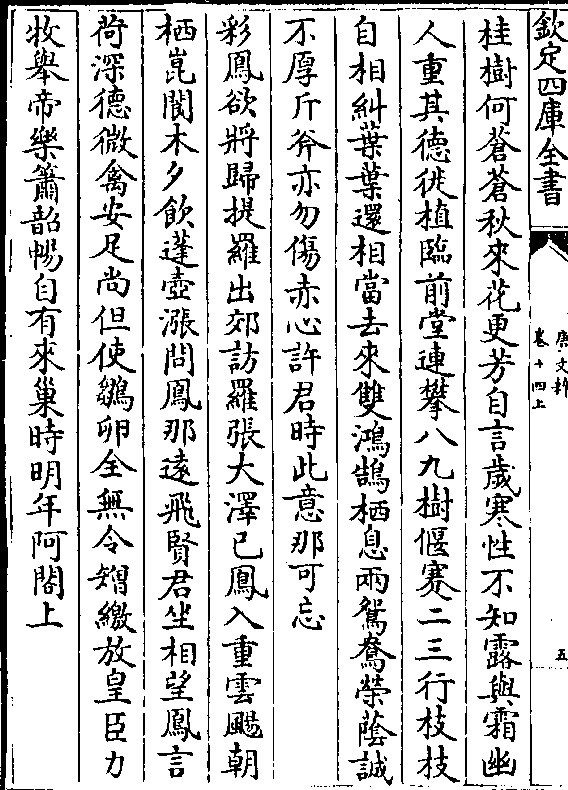 欽定四庫全書
唐文粹
卷十四上
五
桂樹何蒼蒼秋來花更芳自言歲寒性不知露與霜幽
人重其德徙植臨前堂連攀八九樹偃蹇二三行枝枝
自相糾葉葉還相當去來雙鴻鵠栖息兩鴛鴦榮蔭誠
不厚斤斧亦勿傷赤心許君時此意那可忘
彩鳳欲將歸提羅出郊訪羅張大澤已鳳入重雲颺朝
栖崑閬木夕飲蓬壺漲問鳳那遠飛賢君坐相望鳳言
荷深德微禽安足尚但使鶵卵全無令矰繳放皇臣力
牧舉帝樂簫韶暢自有來巢時明年阿閣上